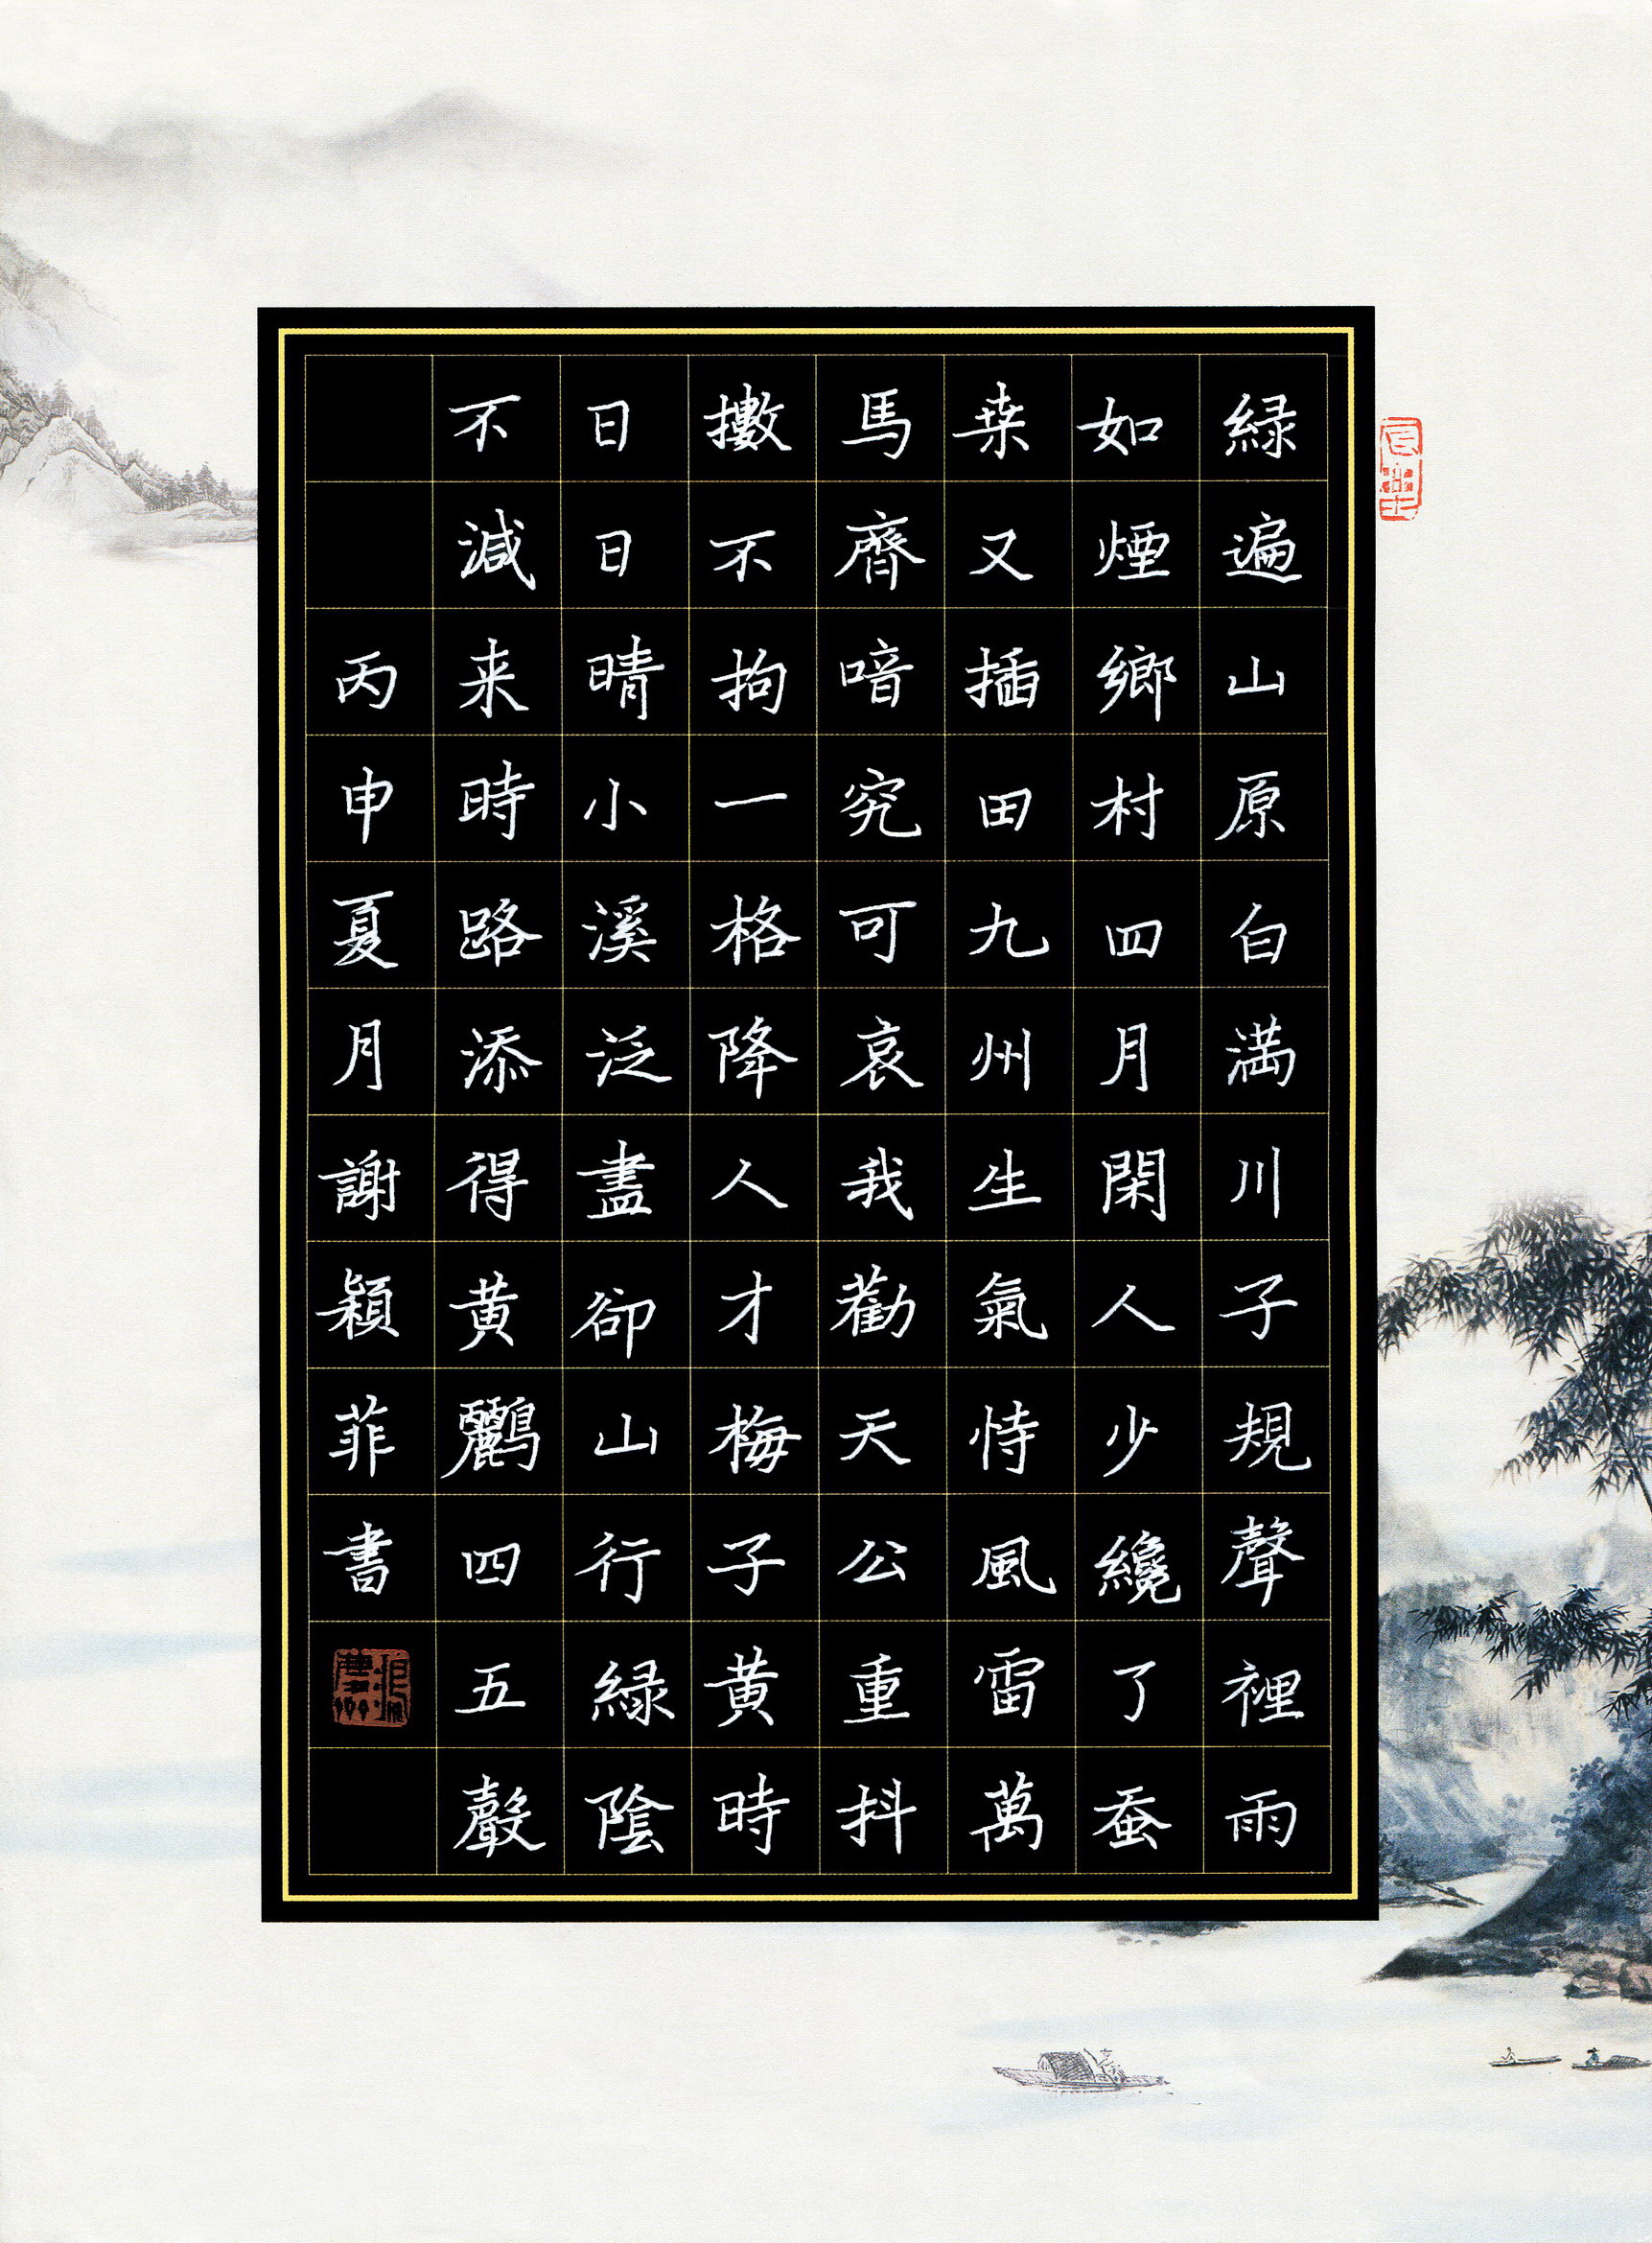 緑遍山原白満川子規聲裡雨
如煙鄉村四月閑人少纔了蚕
桒又插田九州生氣恃風雷萬
馬齊喑究可哀我勸天公重抖
擻不拘一格降人才梅子黄時
日日晴小溪泛盡卻山行緑陰
不減来時路添得黄鸝四五聲
丙申夏月謝穎菲書